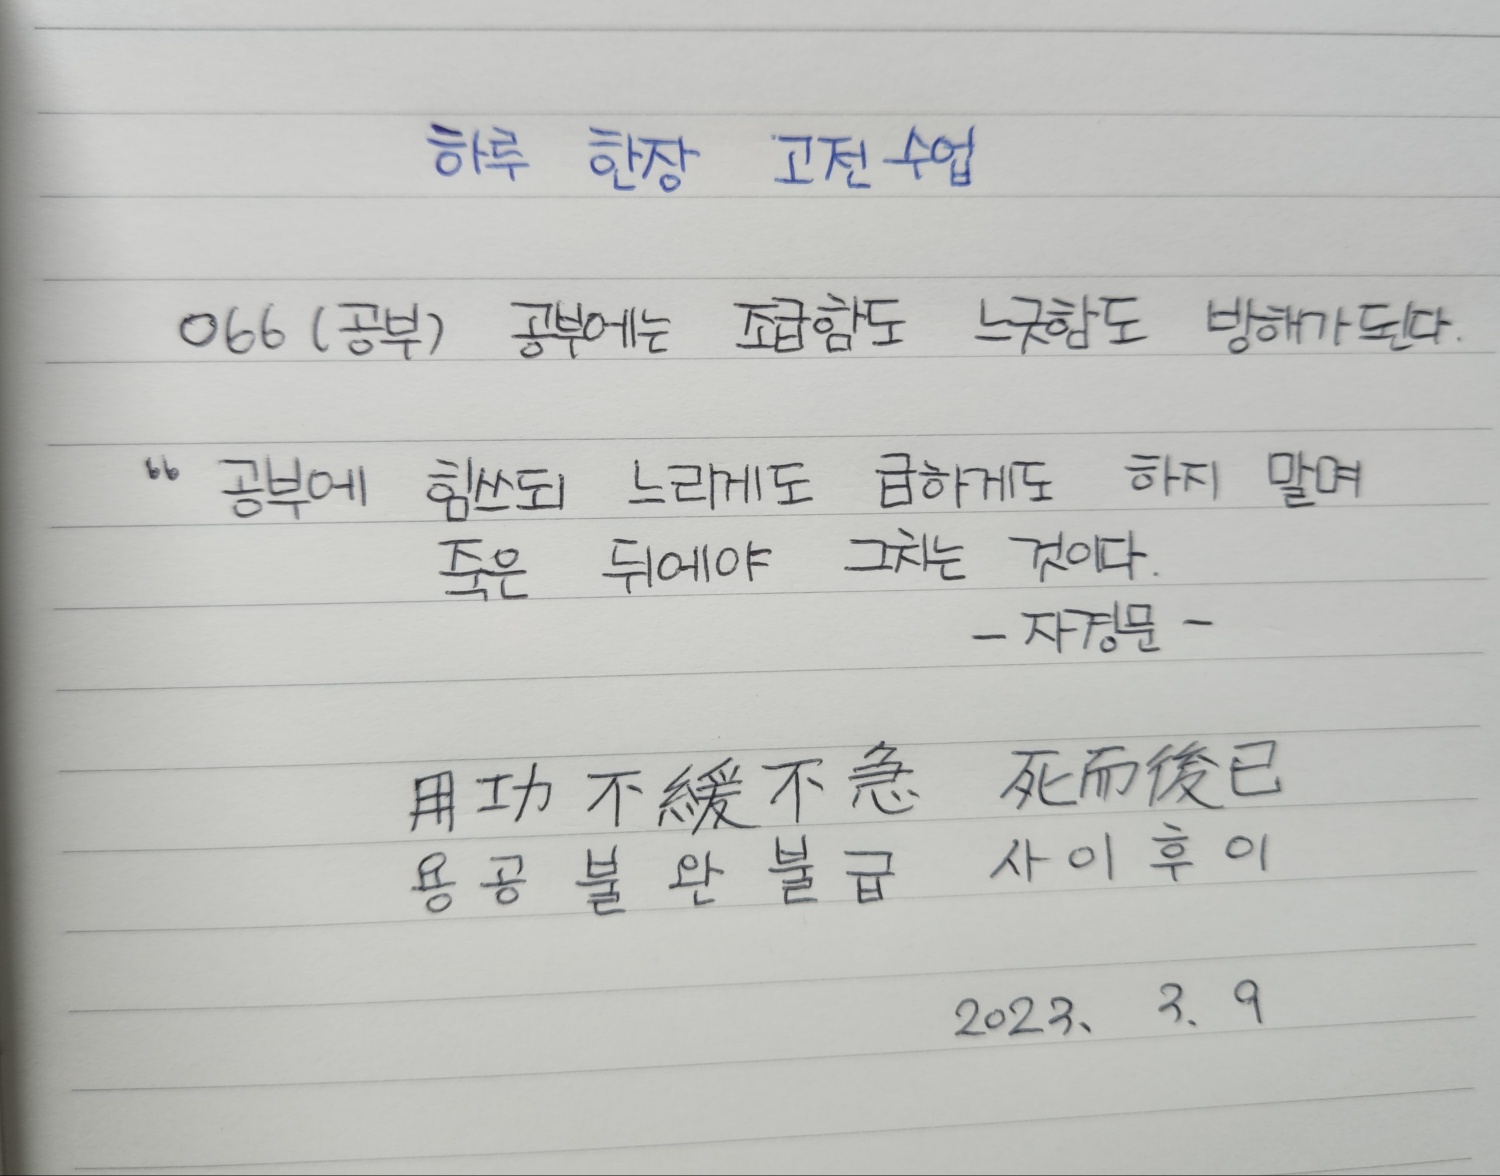 하루 한장 고전 수업
066 (공부) 공부에는 조급함도 느긋함도 방해가 된다.
“ 공부에 힘쓰되 느리게도 급하게도 하지 말며
죽은 뒤에야 그치는 것이다.
- 자경문 -
用功 不緩不急 死而後已
용공 불완불급 사이후이
2023. 3. 9